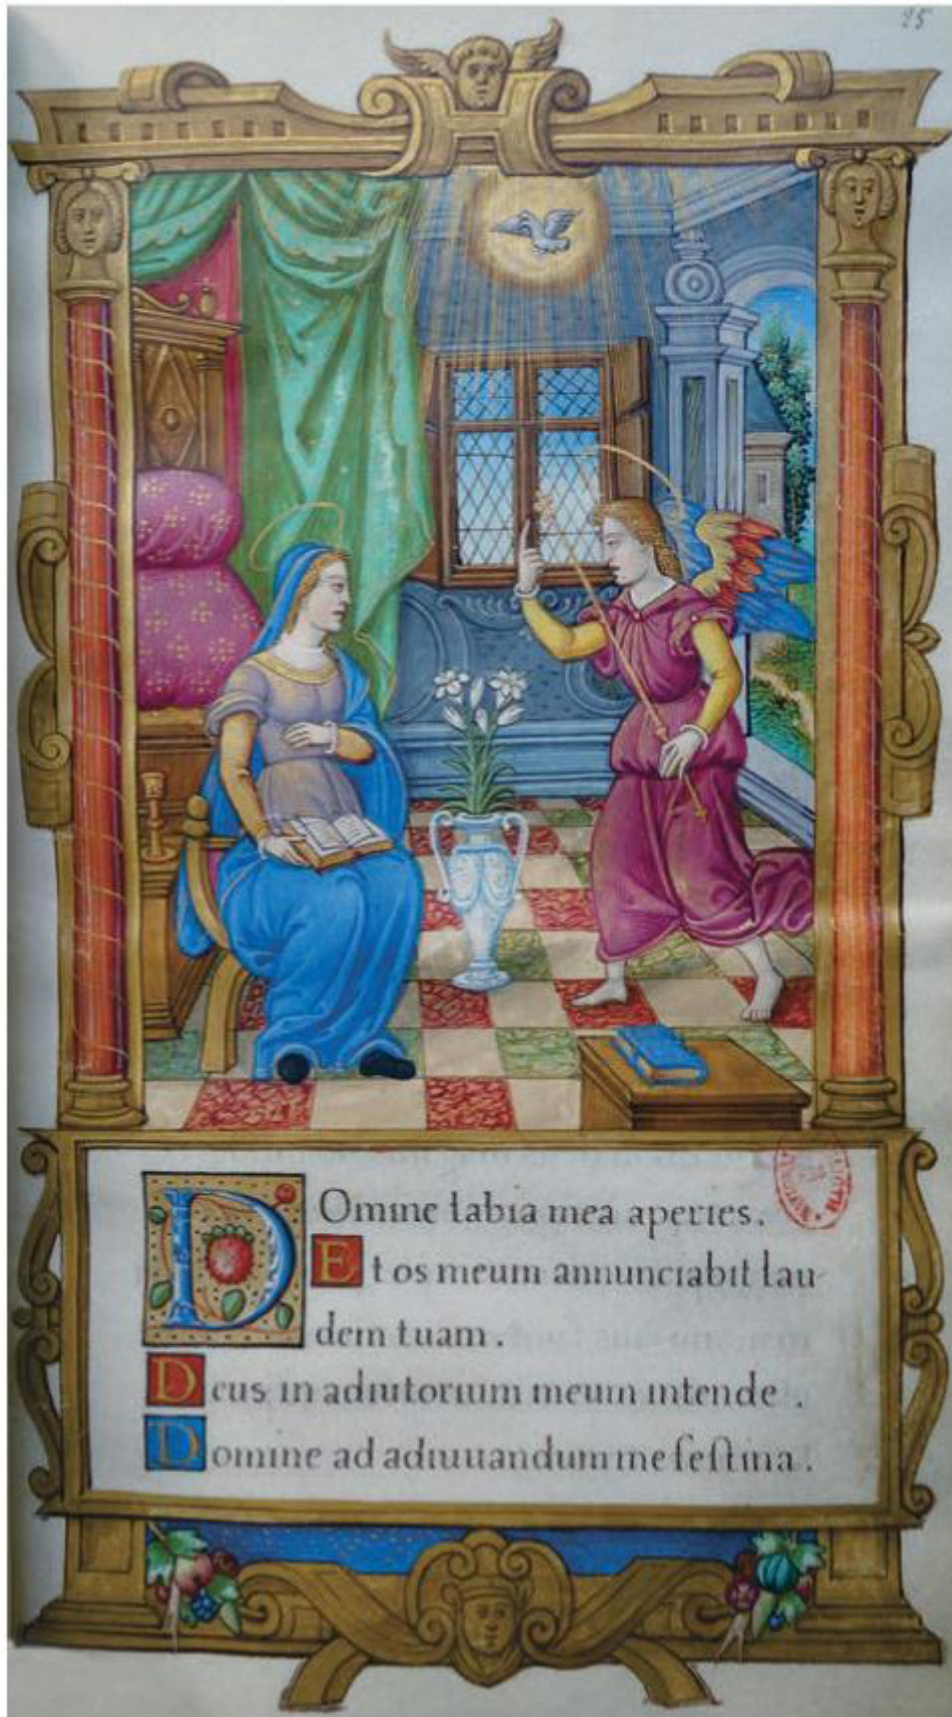 25
Domine labia mea aperies.
Et os meum annunciabit lau-
dem tuam.
Deus in adiutorium meum intende.
Domine ad adiuuandum me feſtina.